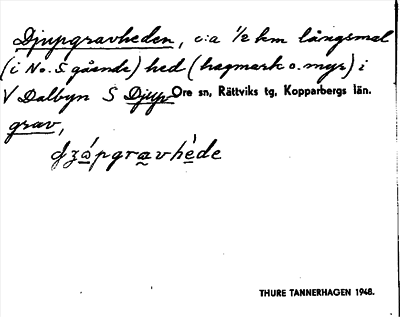 Djupgravheden, c:a 1/2 km långsmal
(i N o. S gående) hed (hagmark o. myr) i
V Dalbyn S Djup Ore sn, Rättviks tg, Kopparbergs län.
grav,
THURE TANNERHAGEN 1948.